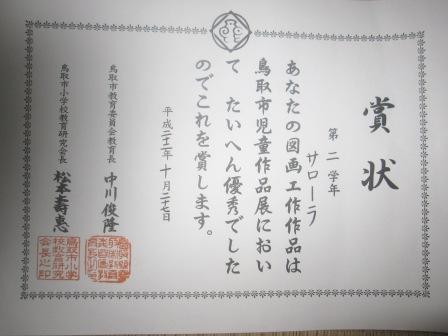 賞状
第二学年
サローラ
あなたの図画工作作品は
鳥取市児童作品展におい
て たいへん優秀でした
のでこれを賞します。
平成二十二年十月二十七日
鳥取市教育委員会教育長 中川俊隆
鳥取市小学校教育研究会長 松本壽恵
鳥取市小学
校教育研究
会長之印